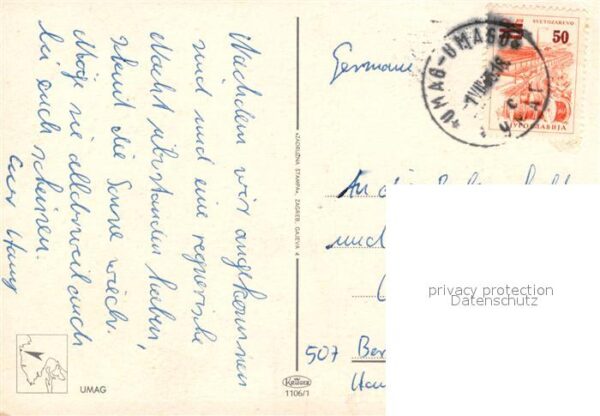 Nachdem wir angekommen
sind und eine regnerische
Nacht überstanden haben,
scheint die Sonne wieder.
Möge sie allderweil auch
bei euch scheinen.
euer
UMAG
»ZADRUŽNA ŠTAMPA«, ZAGREB, GAJEVA 4
1106/1
Germany
SVETOZAREVO
50
JUGOSLAVIJA
UMAG-UMAGO
An die
und
507 Ber
privacy protection
Datenschutz